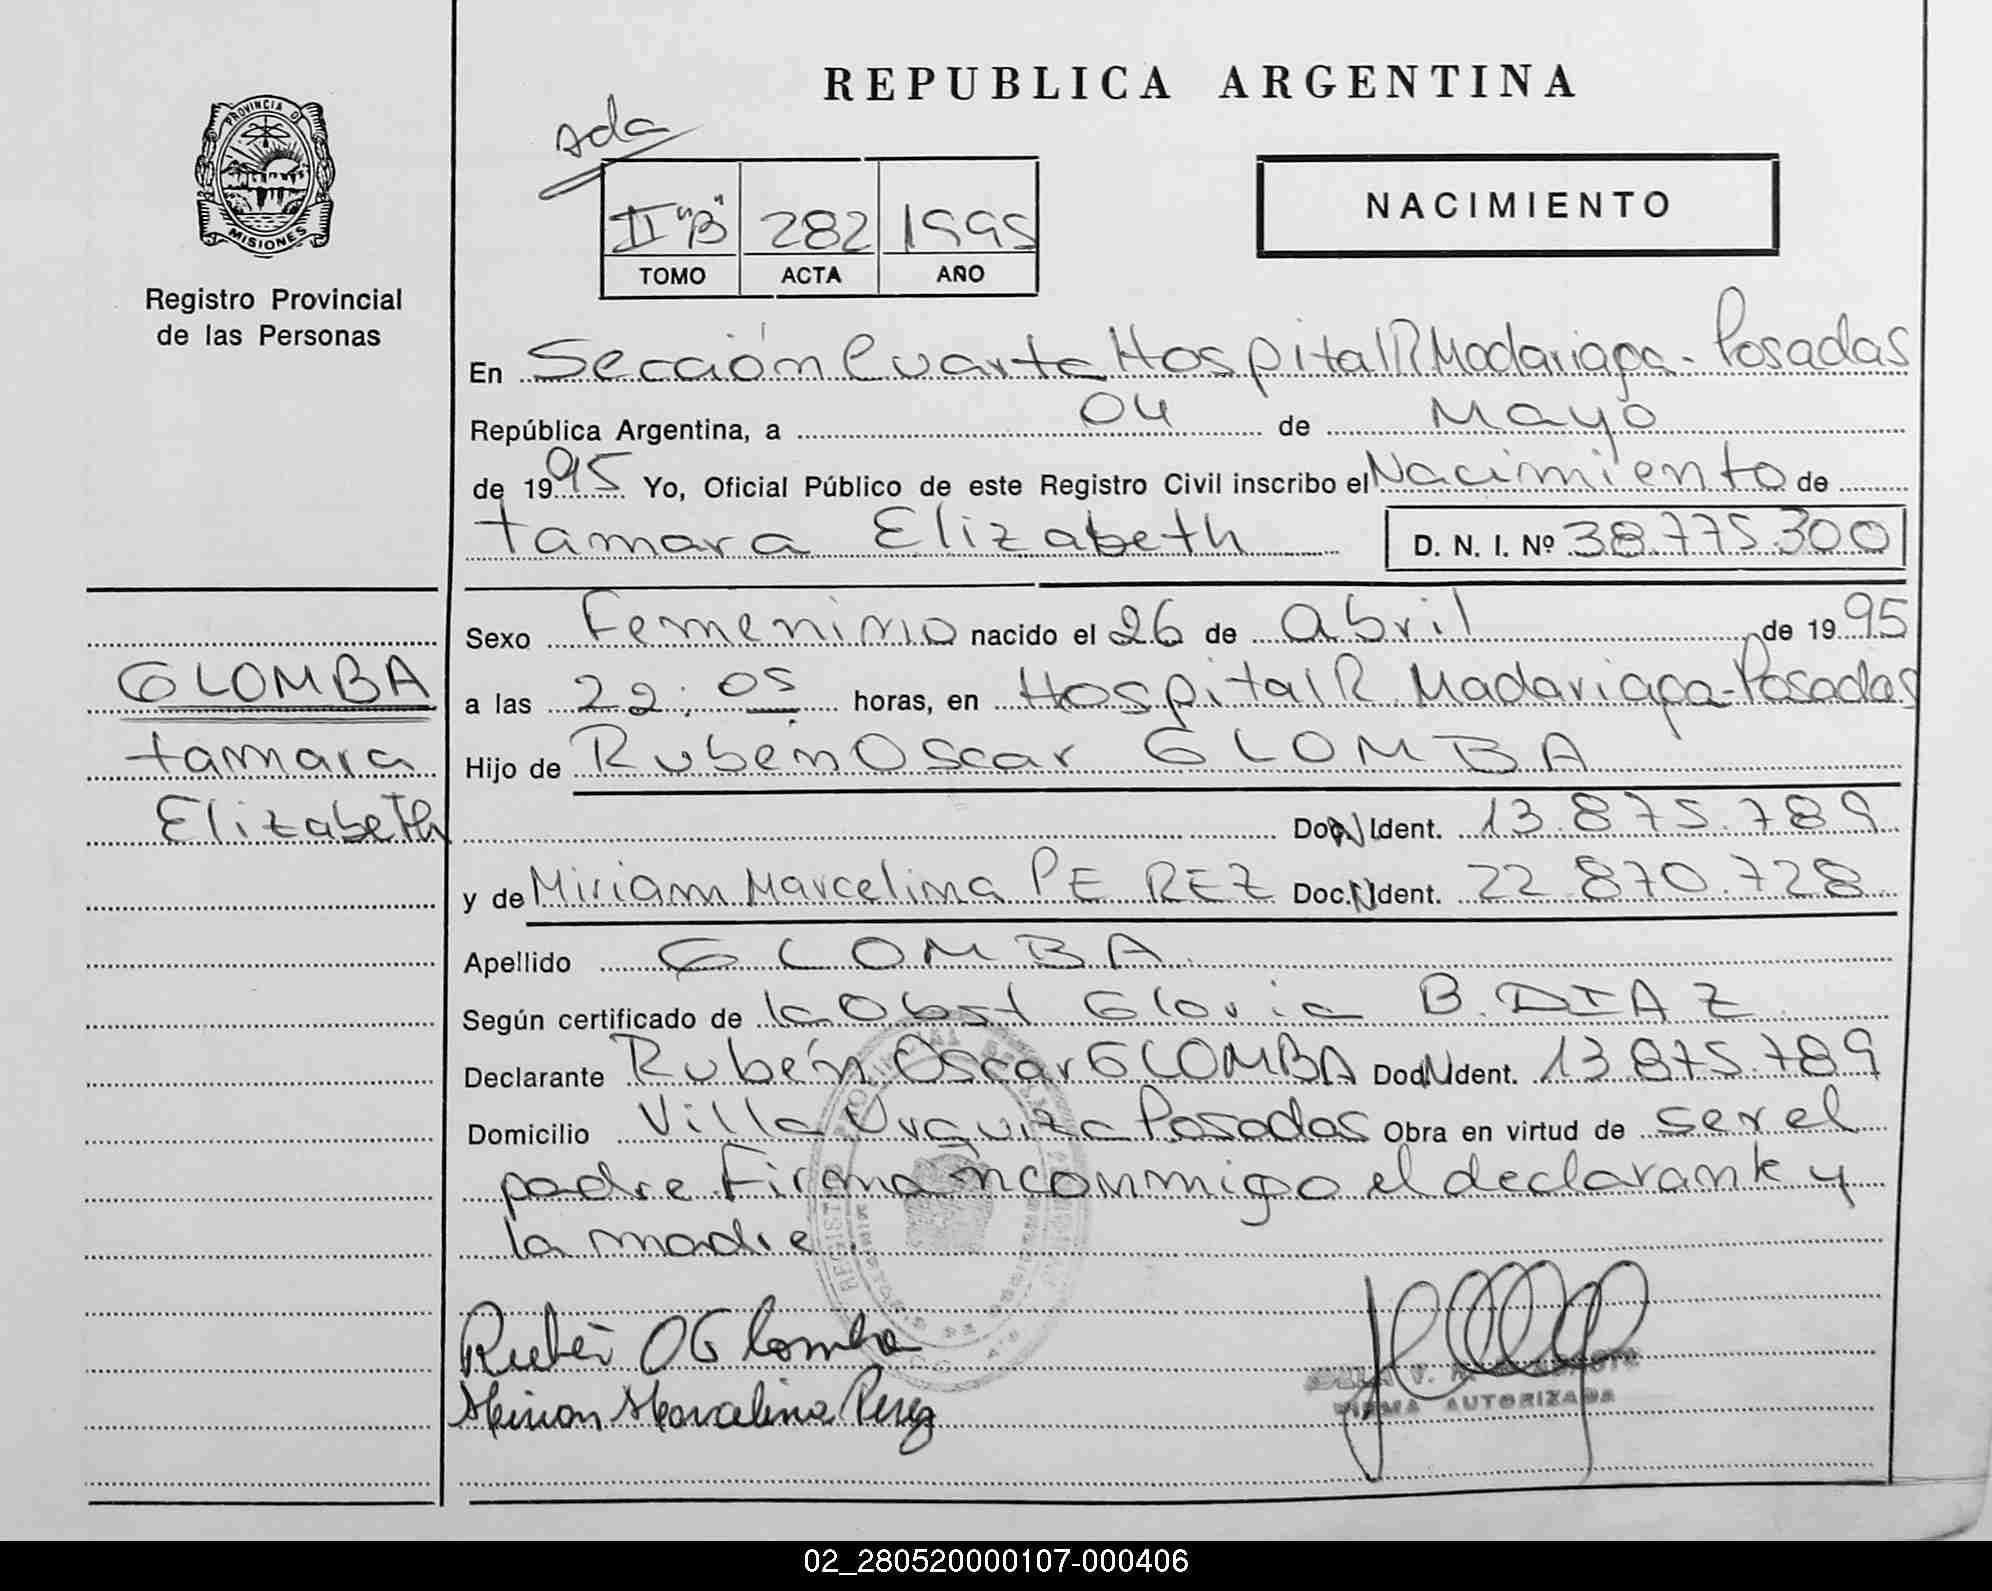 REPUBLICA ARGENTINA
PROVINCIA DE
MISIONES
Registro Provincial
de las Personas
II "B" 282 1995
TOMO ACTA AÑO
NACIMIENTO
En Sección Cuarta Hospital R Madariaga - Posadas
República Argentina, a 04 de Mayo
de 1995 Yo, Oficial Público de este Registro Civil inscribo el Nacimiento de
tamara Elizabeth D. N. I. Nº 38.775.300
GLOMBA
tamara
Elizabeth
Sexo Femenino nacido el 26 de abril de 1995
a las 22:05 horas, en Hospital R. Madariaga - Posadas
Hijo de Rubén Oscar GLOMBA
Doc. N Ident. 13.875.789
y de Miriam Marcelina PEREZ Doc. N Ident. 22.870.728
Apellido GLOMBA
Según certificado de la Obst Gloria B. DIAZ
Declarante Rubén Oscar GLOMBA Doc N Ident. 13.875.789
Domicilio Villa Urquiza Posadas Obra en virtud de ser el
padre Firman conmigo el declarante y
la madre.
Rubén O Glomba
Miriam Marcelina Perez
FIRMA AUTORIZADA
02_280520000107-000406